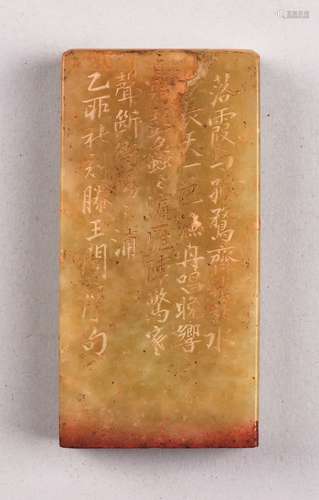 落霞与孤鶩齊飛秋水
長天一色漁舟唱晚響
彭蠡之濱雁陣驚寒
聲斷衡陽之浦
乙卯秋刻滕王閣序句